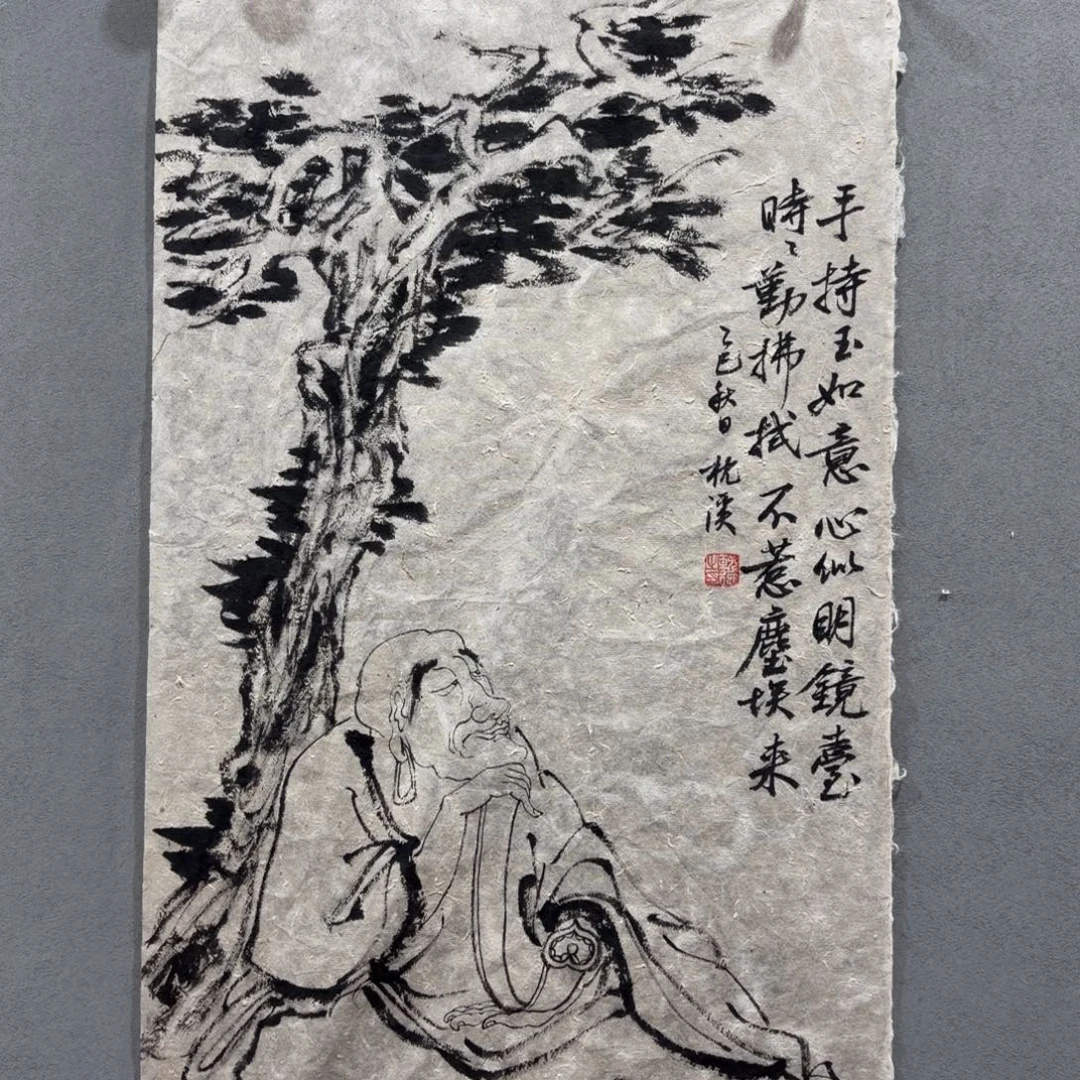 手持玉如意心似明鏡臺
時々勤拂拭不惹塵埃来
乙巳秋日 枕溪